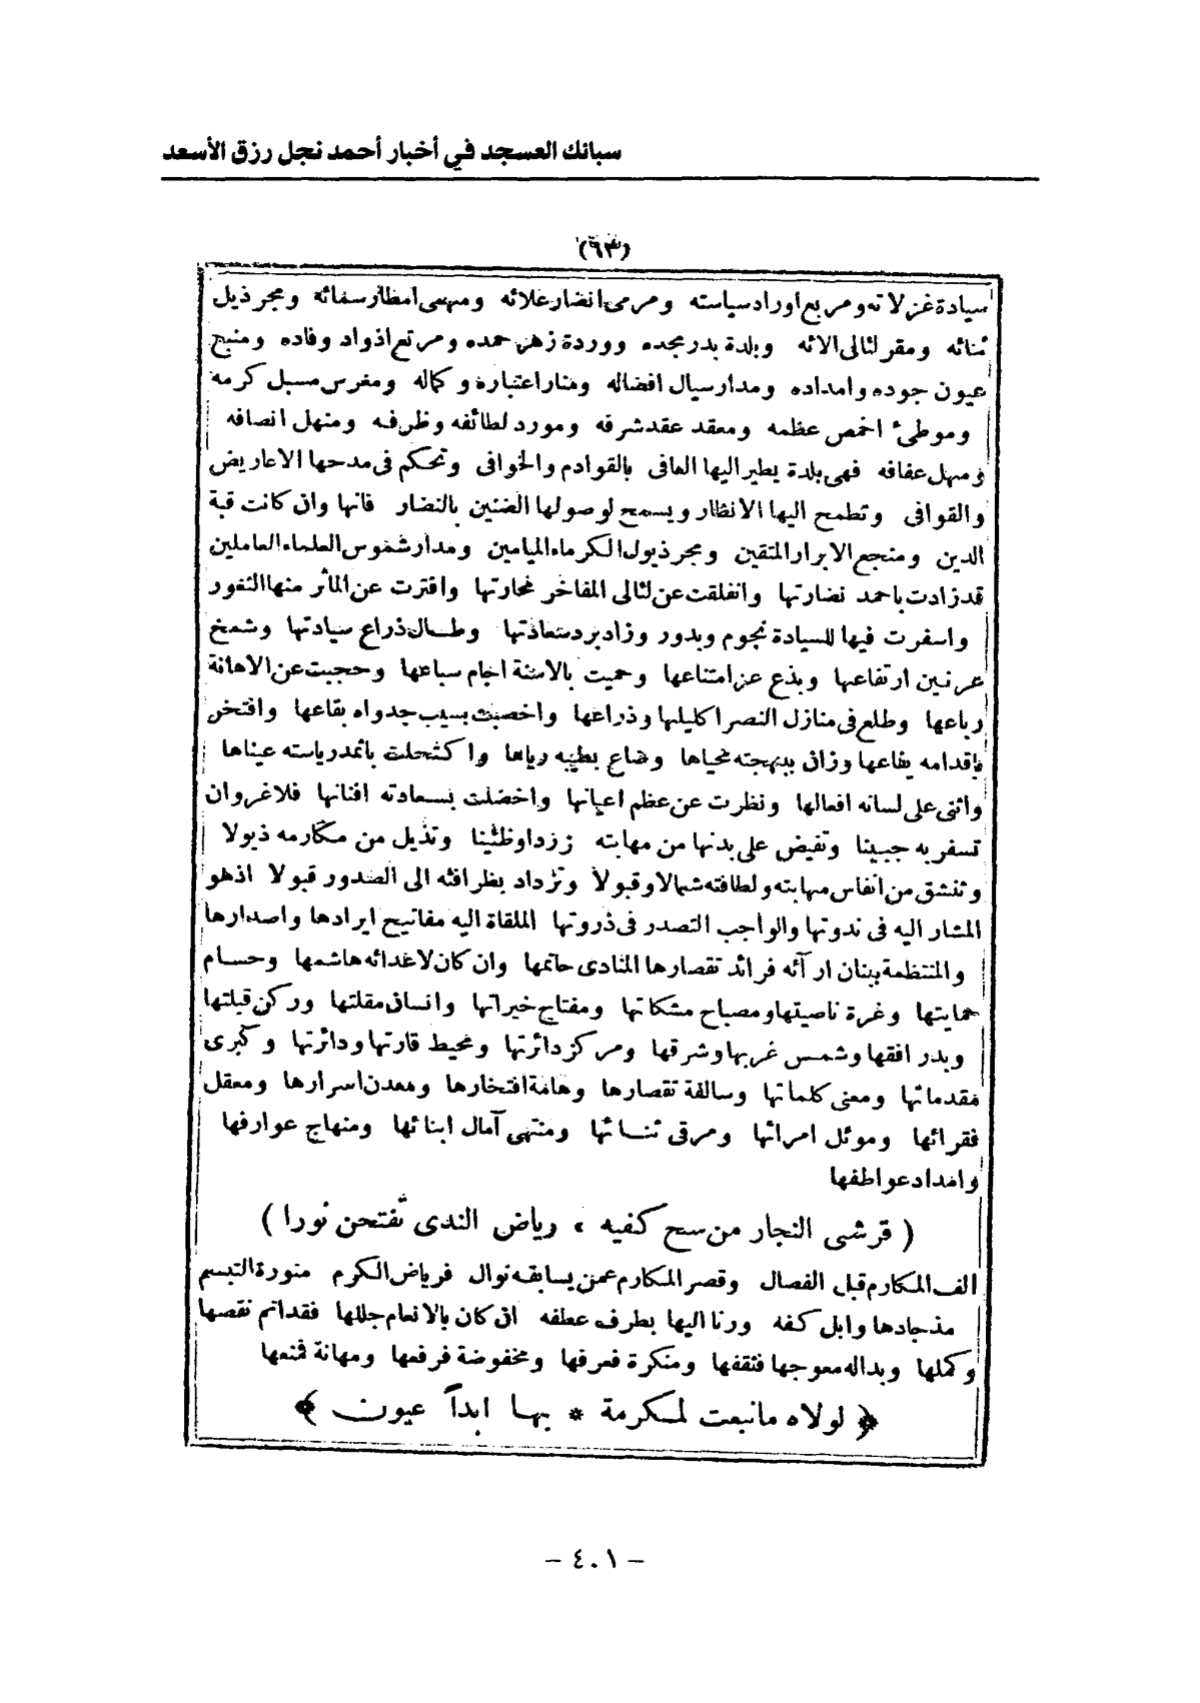 سبائك العسجد في أخبار أحمد نجل رزق الأسعد
(٦٣)
سيادة غزلاته ومربع اوراد سياسته ومرمى انضار علائه ومهمى امطار سمائه ومجر ذيل
ثنائه ومقر لئالى الائه وبلدة بدر مجده ووردة زهر حمده ومرتع اذواد وفاده ومنبع
عيون جوده وامداده ومدار سيال افضاله ومنار اعتباره وكماله ومغرس مسبل كرمه
وموطئ اخمص عظمه ومعقد عقد شرفه ومورد لطائفه وظرفه ومنهل انصافه
ومهل عفافه فهى بلدة يطير اليها العافى بالقوادم والخوافى وتحكم فى مدحها الاعاريض
والقوافى وتطمح اليها الانظار ويسمح لوصولها الضنين بالنضار فانها وان كانت قبة
الدين ومنجع الابرار المتقين ومجر ذيول الكرماء الميامين ومدار شموس العلماء العاملين
قد زادت باحمد نضارتها وانفلقت عن لئالى المفاخر محارتها وافترت عن المأثر منها الثغور
واسفرت فيها للسيادة نجوم وبدور وزاد برد سعادتها وطال ذراع سيادتها وشمخ
عرنين ارتفاعها وبذع عز امتناعها وحميت بالاسنة اجام سباعها وحجبت عن الاهانة
رباعها وطلع فى منازل النصر اكليلها وذراعها واخصبت بسيب جدواه بقاعها وافتخر
باقدامه يفاعها وزان ببهجته محياها وضاع بطيبه رياها واكتحلت باثمد رياسته عيناها
واثنى على لسانه افعالها ونظرت عن عظم اعيانها واخضلت بسعادته افنانها فلا غرو ان
تسفر به جبينا وتفيض على بدنها من مهابته زردا وظئينا وتذيل من مكارمه ذيولا
وتنشق من انفاس مهابته ولطافته شمالا وقبولا وتزداد بظرافته الى الصدور قبولا اذ هو
المشار اليه فى ندوتها والواجب التصدر فى ذروتها الملقاة اليه مفاتيح ايرادها واصدارها
والمنتظمة ببنان ارآئه فرائد تقصارها المنادى حاتمها وان كان لاعدائه هاشمها وحسام
حمايتها وغرة ناصيتها ومصباح مشكاتها ومفتاح خيراتها وانسان مقلتها وركن قبلتها
وبدر افقها وشمس غربها وشرقها ومركز دائرتها ومحيط قارتها ودائرتها وكبرى
مقدماتها ومعنى كلماتها وسالفة تقصارها وهامة افتخارها ومعدن اسرارها ومعقل
فقرائها وموئل امرائها ومرقى ثنائها ومنتهى آمال ابنائها ومنهاج عوارفها
وامداد عواطفها
( قرشى النجار من سح كفيه ، رياض الندى تفتحن نورا )
الف المكارم قبل الفصال وقصر المكارم عمن يسابقه نوال فرياض الكرم منورة التبسم
مذ جادها وابل كفه ورنا اليها بطرف عطفه ان كان بالانعام جللها فقد اتم نقصها
وكملها وبدا له معوجها فثقفها ومنكرة فعرفها ومخفوضة فرفعها ومهانة فمنعها
﴿ لولاه ما نبعت لمكرمة * بها ابداً عيون ﴾
– ٤٠١ –